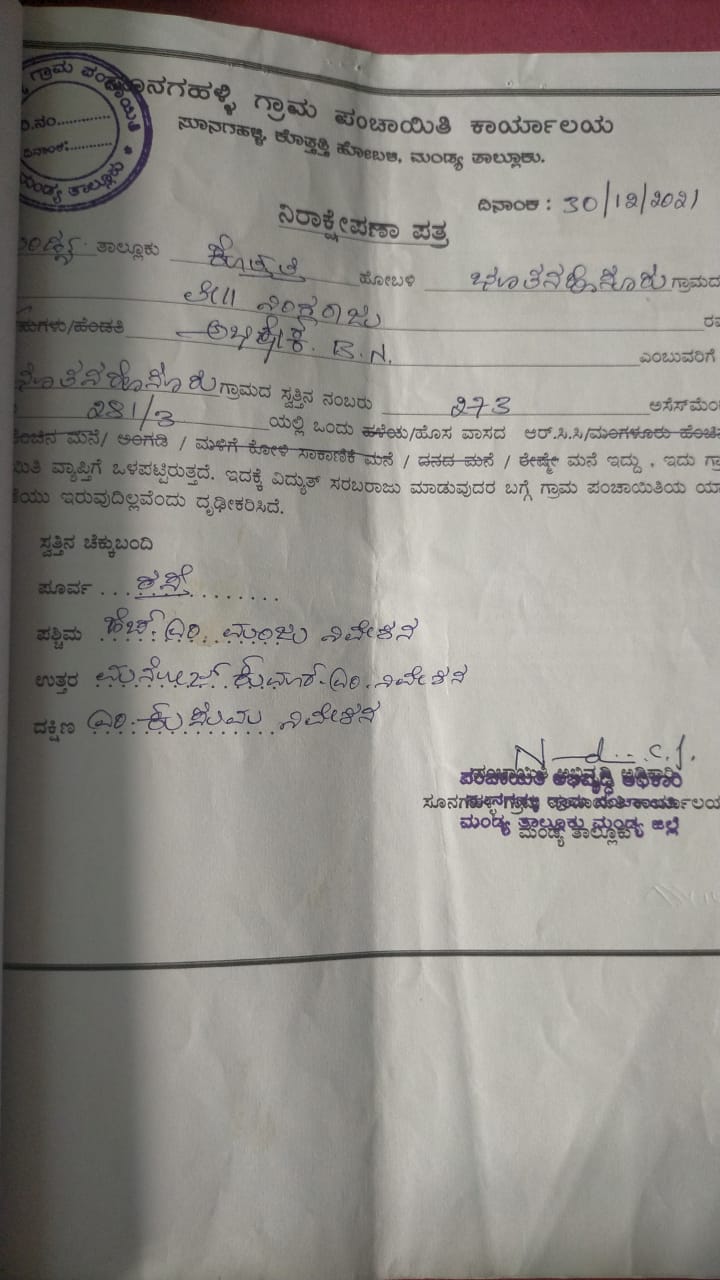 ಗ್ರಾಮ ಪಂಚಾಯಿತಿ
ದಿನಾಂಕ:............
ಮಂಡ್ಯ ತಾಲ್ಲೂಕು
ಸೂನಗಹಳ್ಳಿ ಗ್ರಾಮ ಪಂಚಾಯಿತಿ ಕಾರ್ಯಾಲಯ
ಸೂನಗಹಳ್ಳಿ, ಕೊತ್ತತ್ತಿ ಹೋಬಳಿ, ಮಂಡ್ಯ ತಾಲ್ಲೂಕು.
ದಿನಾಂಕ : 30/12/2021
ನಿರಾಕ್ಷೇಪಣಾ ಪತ್ರ
ತಾಲ್ಲೂಕು ಕೊತ್ತತ್ತಿ ಹೋಬಳಿ ಗ್ರಾಮದ
ಲೇ|| ನಿಂಗರಾಜು
ಮಗಳು/ಹೆಂಡತಿ ಅಭಿಷೇಕ. B.N. ಎಂಬುವರಿಗೆ
ಗ್ರಾಮದ ಸ್ವತ್ತಿನ ನಂಬರು 273
281/3 ಯಲ್ಲಿ ಒಂದು ಹಳೆಯ/ಹೊಸ ವಾಸದ ಆರ್.ಸಿ.ಸಿ/ಮಂಗಳೂರು ಹೆಂಚಿನ
ಹೆಂಚಿನ ಮನೆ/ ಅಂಗಡಿ / ಮಳಿಗೆ ಕೋಳಿ ಸಾಕಾಣಿಕೆ ಮನೆ / ದನದ ಮನೆ / ರೇಷ್ಮೇ ಮನೆ ಇದ್ದು , ಇದು
ವ್ಯಾಪ್ತಿಗೆ ಒಳಪಟ್ಟಿರುತ್ತದೆ. ಇದಕ್ಕೆ ವಿದ್ಯುತ್ ಸರಬರಾಜು ಮಾಡುವುದರ ಬಗ್ಗೆ ಗ್ರಾಮ ಪಂಚಾಯಿತಿಯ
ಇರುವುದಿಲ್ಲವೆಂದು ದೃಢೀಕರಿಸಿದೆ.
ಸ್ವತ್ತಿನ ಚೆಕ್ಕುಬಂದಿ
ಪೂರ್ವ ... ರಸ್ತೆ .........
ಪಶ್ಚಿಮ ಹೆಚ್.ಎಂ. ಮಂಜು ನಿವೇಶನ
ಉತ್ತರ ಮನೋಜ್ ಕುಮಾರ್.ಎಂ. ನಿವೇಶನ
ದಕ್ಷಿಣ ಎಂ. ಕುಸುಮ ನಿವೇಶನ
ಪಂಚಾಯಿತಿ ಅಭಿವೃದ್ಧಿ ಅಧಿಕಾರಿ
ಮಂಡ್ಯ ತಾಲ್ಲೂಕು ಮಂಡ್ಯ ಜಿಲ್ಲೆ
ಮಂಡ್ಯ ತಾಲ್ಲೂಕು